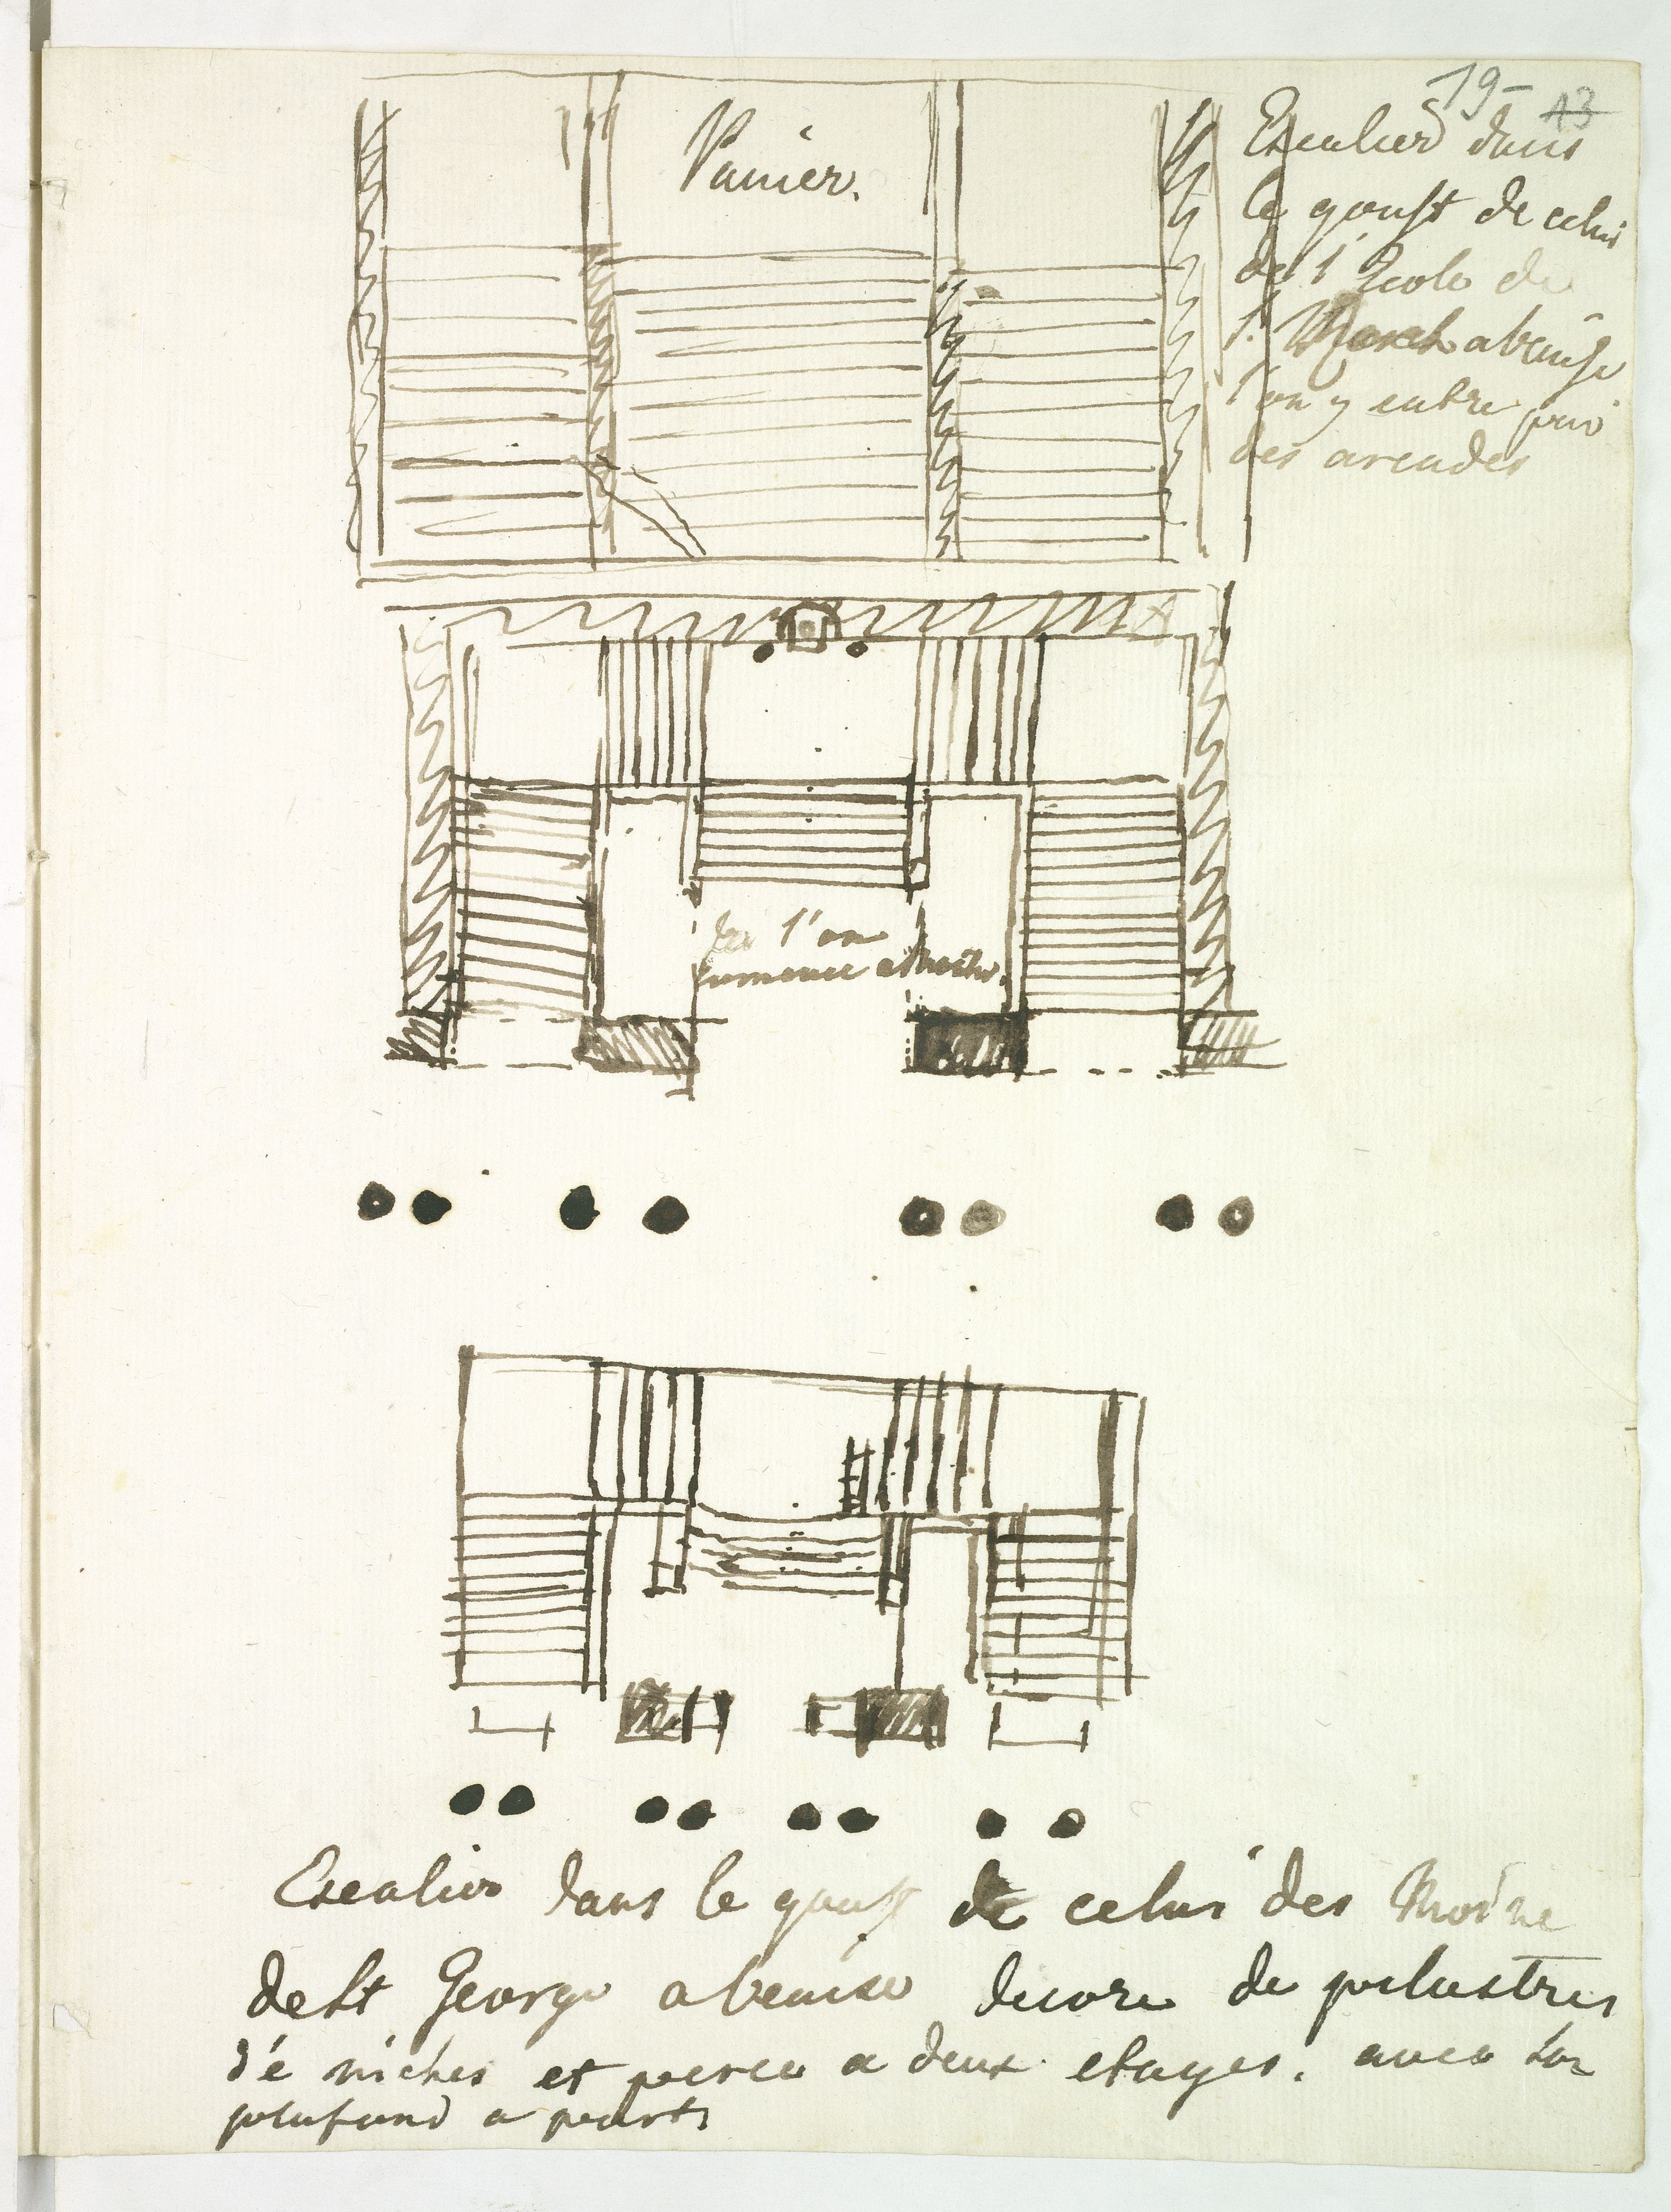 19
13
Panier.
Escalier dans
le goust de celui
de l'Ecole de
S. March a Venise
l'on y entre par
des arcades
l'on
commence a monter.
Escalier dans le goust de celui des Moine
de St George a Venise decore de pilastres
de niches et perce a deux etages. avec son
plafond a part